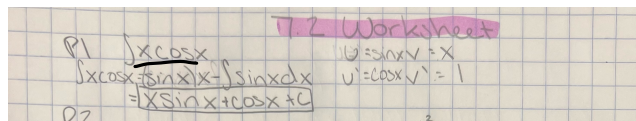 7.2 Worksheet
P1 ∫xcosx u=sinx v=x
∫xcosx=(sinx)x-∫sinxdx u'=cosx v'=1
=xsinx+cosx+C
P2 2